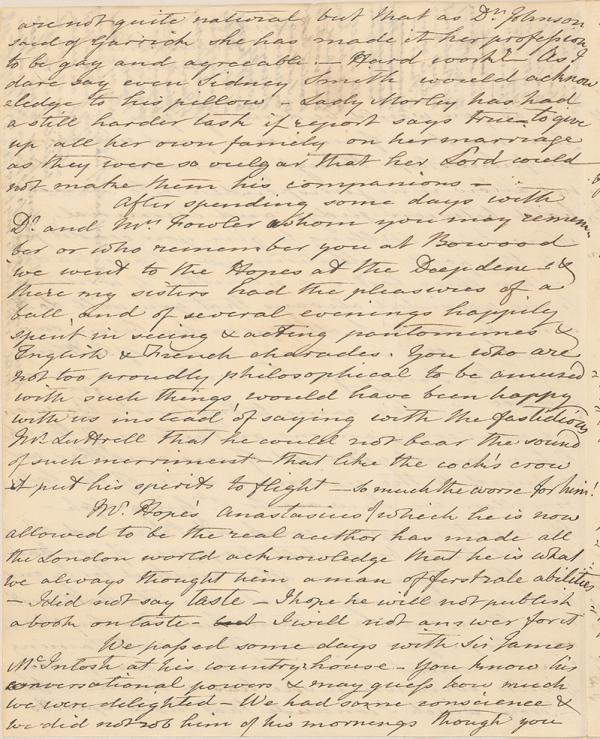 are not quite natural but that as Dr. Johnson
said of Garrick she has made it her profession
to be gay and agreeable. — Hard work! As I
dare say even Sidney Smith would acknow
eledge to his pillow — Lady Morley has had
a still harder task if report says true — to give
up all her own family on her marriage
as they were so vulgar that her Lord could
not make them his companions —
After spending some days with
Dr. and Mrs Fowler whom you may remem
ber or who remember you at Bowood
we went to the Hopes at the Deepdene &
there my sisters had the pleasures of a
ball, and of several evenings happily
spent in seeing & acting pantomimes &
English & French charades. You who are
not too proudly philosophical to be amused
with such things would have been happy
with us instead of saying with the fastidious
Mr. Luttrell that he could not bear the sound
of such merriment — that like the cock's crow
it put his spirits to flight — so much the worse for him!
Mr. Hope's Anastasius (which he is now
allowed to be the real author has made all
the London world acknowledge that he is what
we always thought him a man of first rate abilities
— I did not say taste — I hope he will not publish
a book on taste — I will not answer for it
We passed some days with Sir James
McIntosh at his country house — You know his
conversational powers & may guess how much
we were delighted — We had some conscience &
we did not rob him of his mornings though you